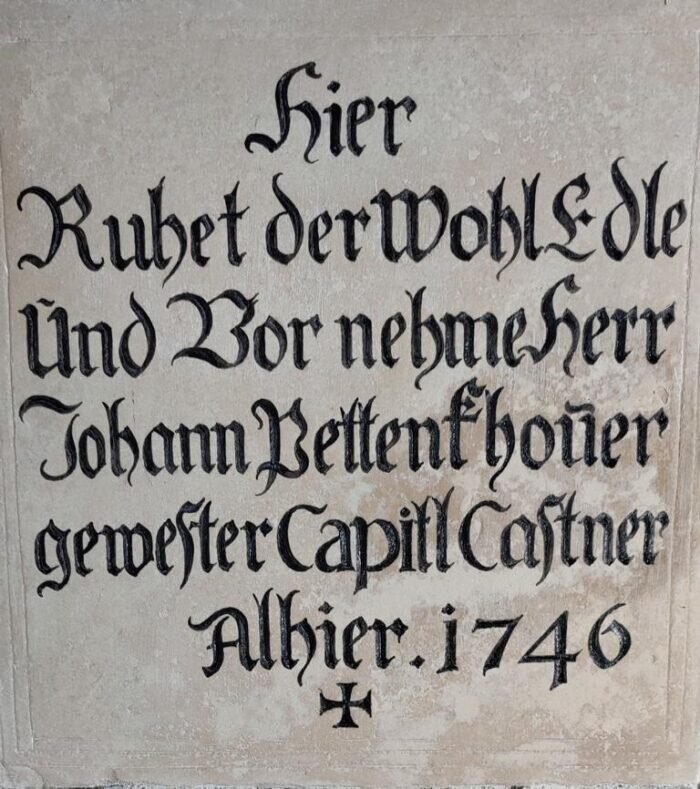 Hier
Ruhet der Wohl Edle
Und Vor nehme Herr
Johann Pettenkhoüer
gewester Capitl Castner
Alhier. 1746